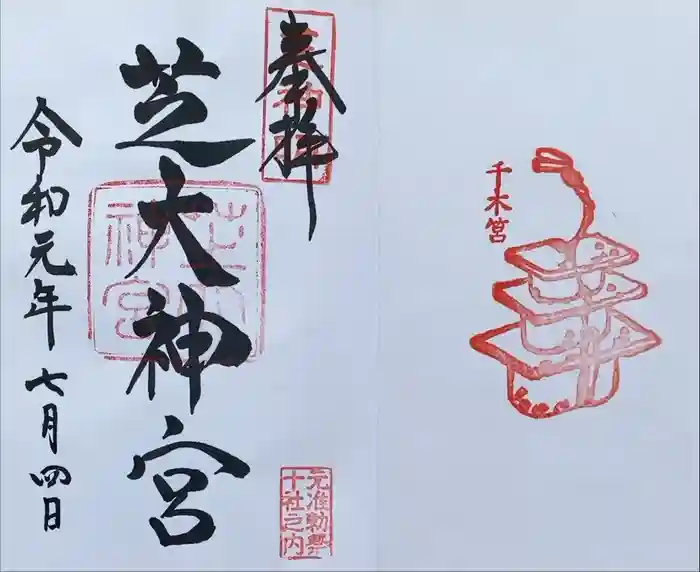 奉拝
芝大神宮
令和元年七月四日
元准勅祭
十社之内
千木筥